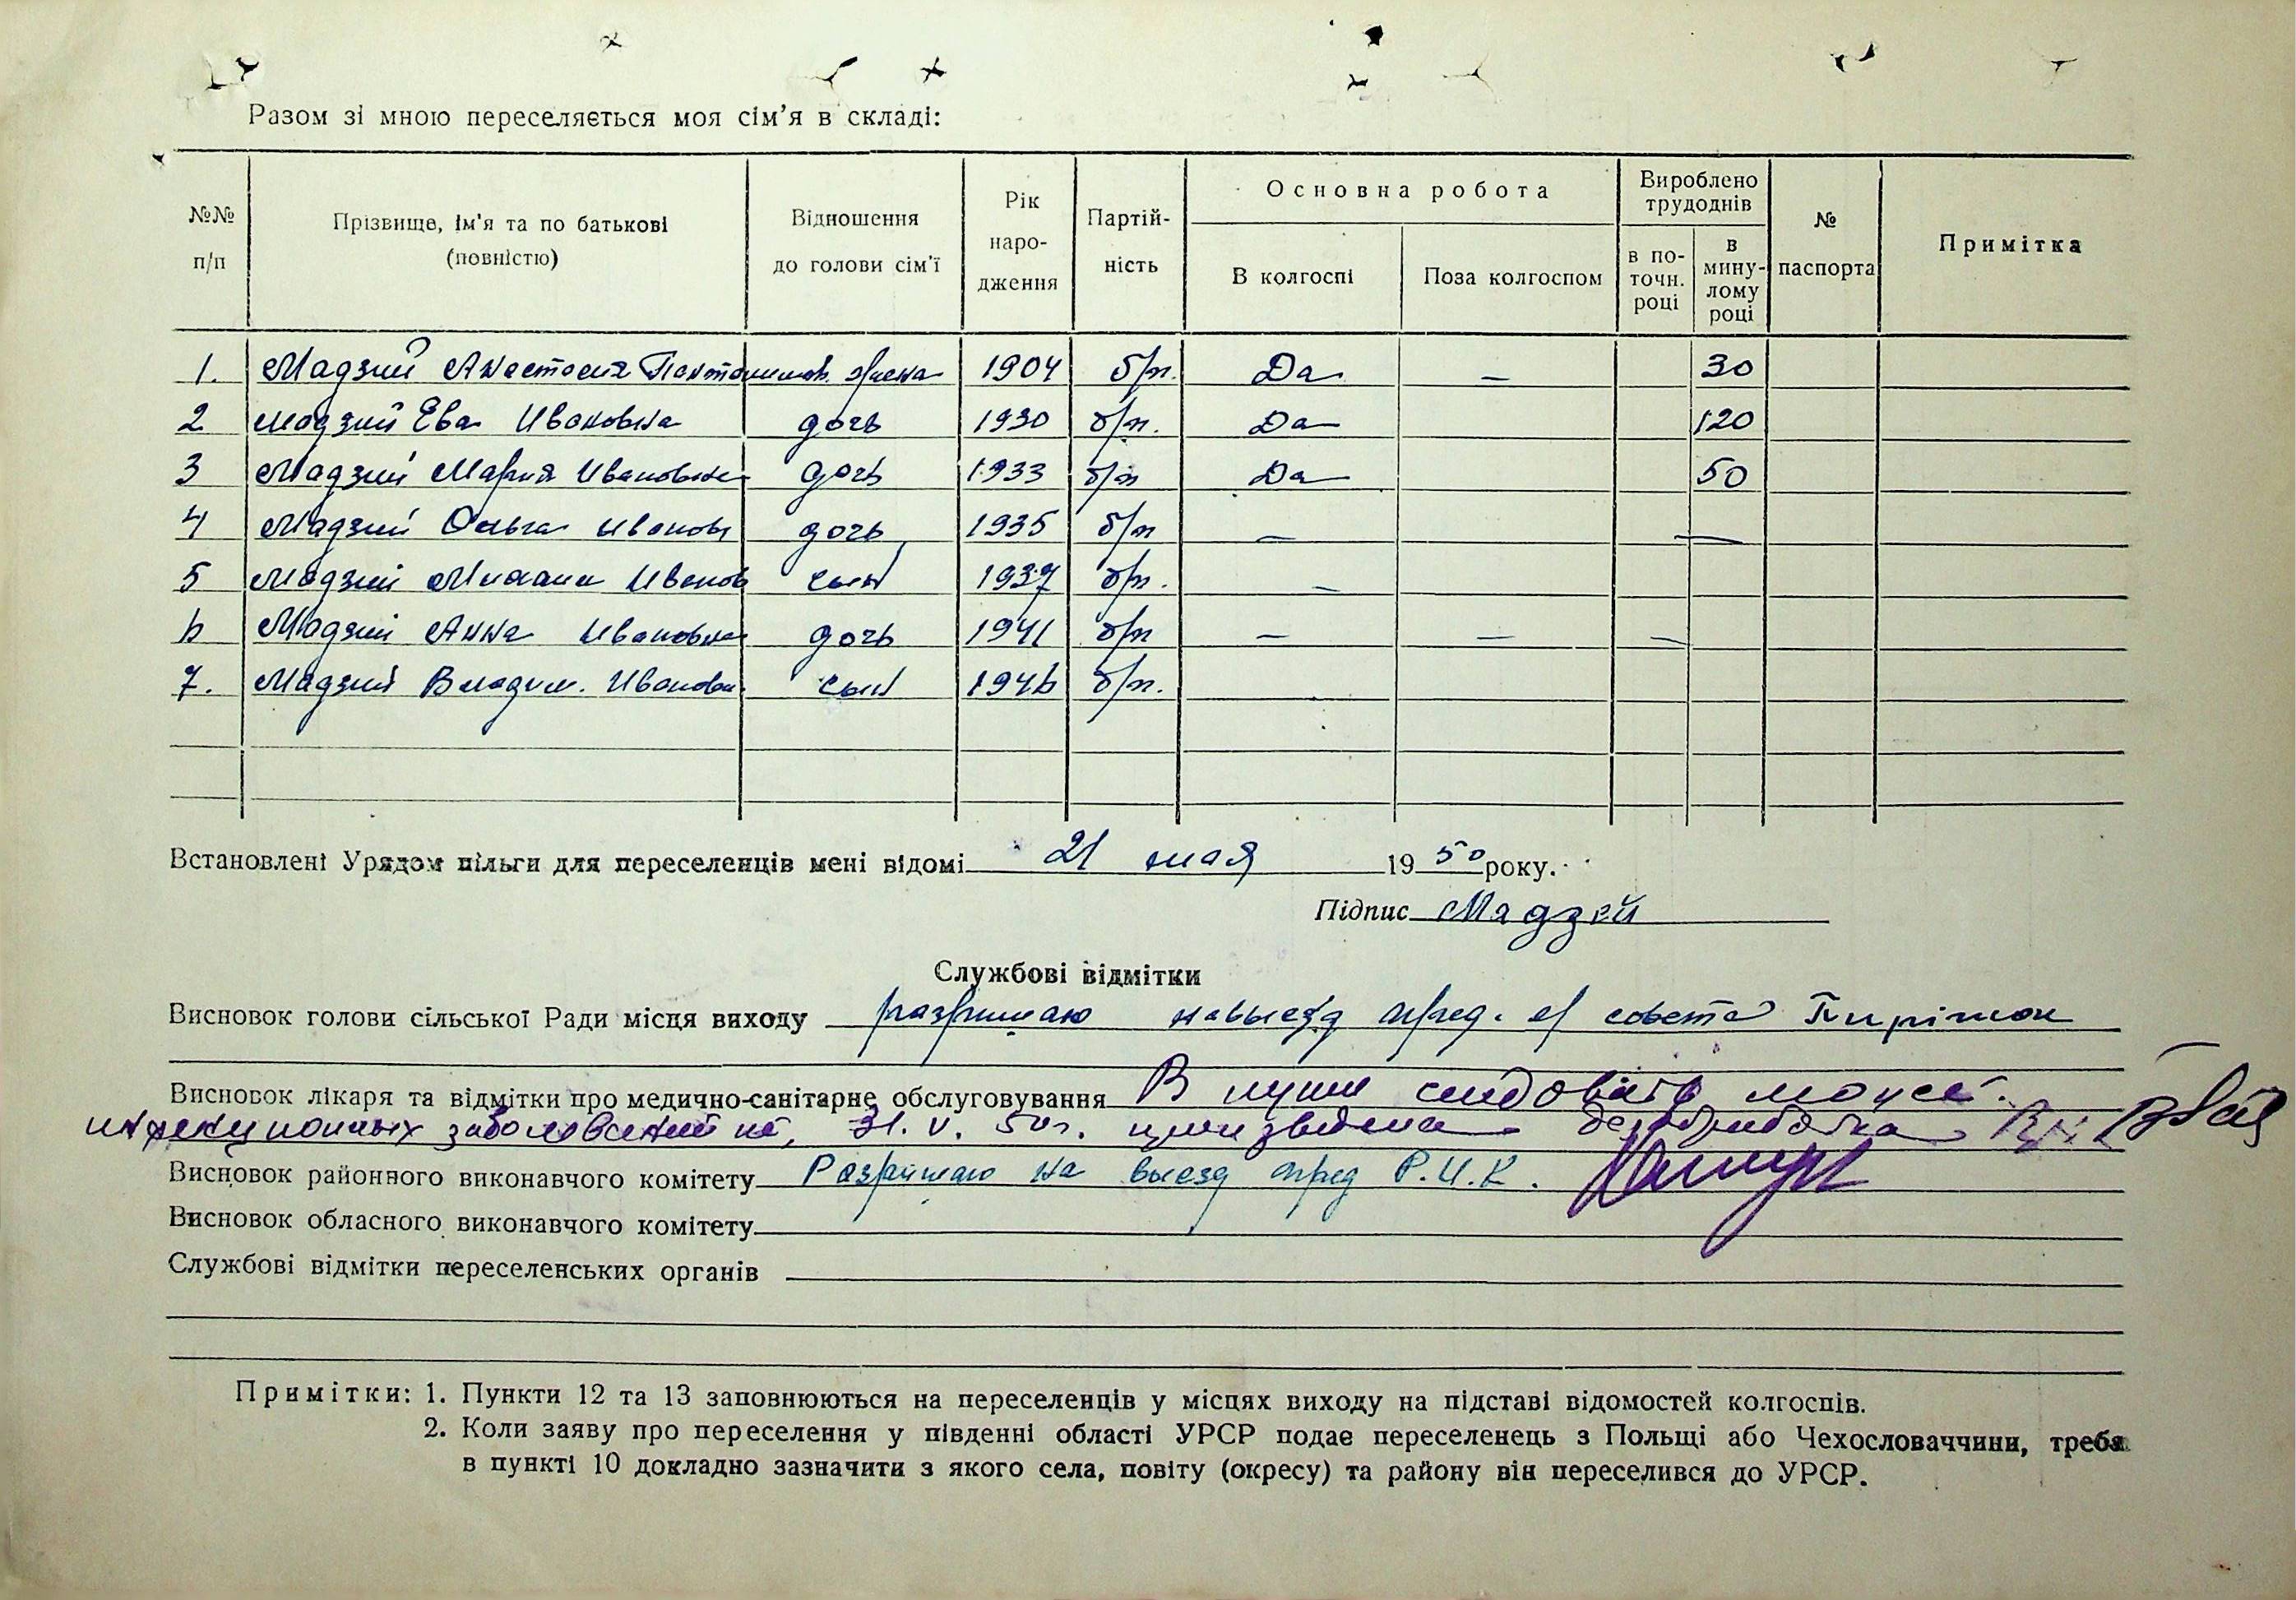 Разом зі мною переселяється моя сім'я в складі:
№№ п/п | Прізвище, ім'я та по батькові (повністю) | Відношення до голови сім'ї | Рік народження | Партійність | Основна робота | Вироблено трудоднів | № паспорта | Примітка
В колгоспі | Поза колгоспом | в поточн. році | в минулому році
1. Мадзий Анастасия жена 1904 б/п. Да — 30
2 Мадзий Ева Ивановна дочь 1930 б/п. Да 120
3 Мадзий Мария Ивановна дочь 1933 б/п Да 50
4 Мадзий Ольга Иванов дочь 1935 б/п — —
5 Мадзий Михаил Иванов сын 1937 б/п. —
6 Мадзий Анна Ивановна дочь 1941 б/п — — —
7. Мадзий Владим. Иванови сын 1946 б/п.
Встановлені Урядом пільги для переселенців мені відомі 21 мая 1950 року.
Підпис Мадзей
Службові відмітки
Висновок голови сільської Ради місця виходу разришаю на выезд пред. с/совета
Висновок лікаря та відмітки про медично-санітарне обслуговування В путь следовать может.
инфекционных заболеваний нет, 31. V. 50 г. произведена
Висновок районного виконавчого комітету Разришаю на выезд пред Р.И.К.
Висновок обласного виконавчого комітету
Службові відмітки переселенських органів
Примітки: 1. Пункти 12 та 13 заповнюються на переселенців у місцях виходу на підставі відомостей колгоспів.
2. Коли заяву про переселення у південні області УРСР подає переселенець з Польщі або Чехословаччини, треба
в пункті 10 докладно зазначити з якого села, повіту (окресу) та району він переселився до УРСР.